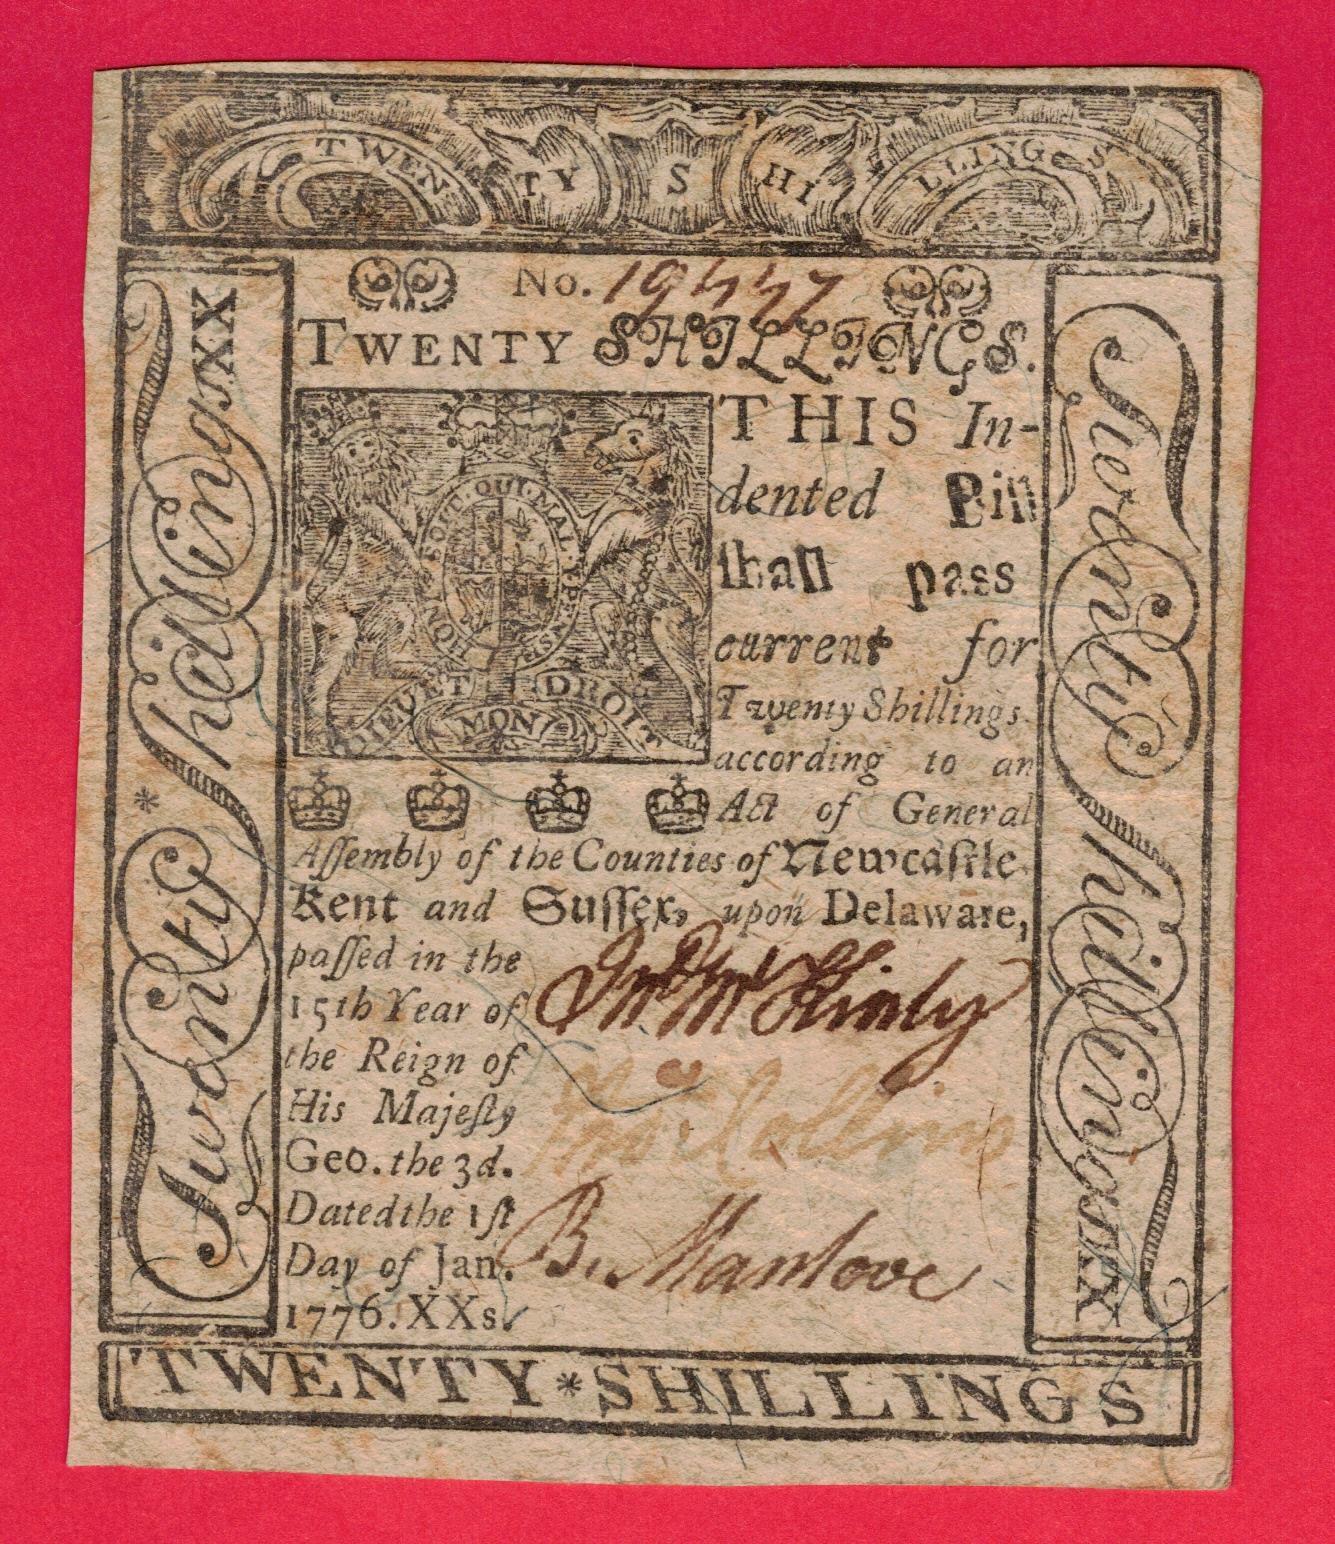 TWENTY SHILLINGS
No. 19447
TWENTY SHILLINGS.
THIS In-
dented Bill
shall pass
current for
Twenty Shillings
according to an
Act of General
Aſſembly of the Counties of Newcaſtle
Kent and Suſſex, upon Delaware,
paſſed in the
15th Year of
the Reign of
His Majeſty
Geo. the 3d.
Dated the 1ſt
Day of Jan.
1776. XXs.
HONI·SOIT·QUI·MAL·Y·PENSE
DIEU ET MON DROIT
Jno McKinly
Thos Collins
B. Manlove
Twenty * Shillings XX
Twenty Shillings XX
TWENTY * SHILLINGS